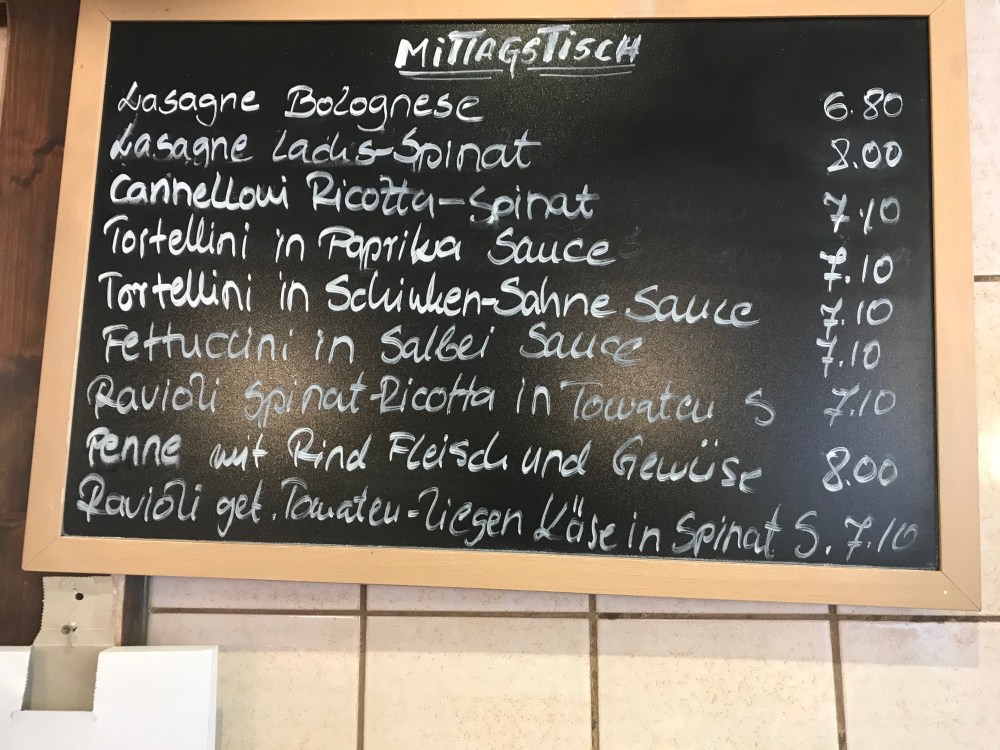 MITTAGSTISCH
Lasagne Bolognese 6.80
Lasagne Lachs-Spinat 8.00
Cannelloni Ricotta-Spinat 7.10
Tortellini in Paprika Sauce 7.10
Tortellini in Schinken-Sahne Sauce 7.10
Fettuccini in Salbei Sauce 7.10
Ravioli Spinat-Ricotta in Tomaten S 7.10
Penne mit Rind Fleisch und Gewüse 8.00
Ravioli get. Tomaten-Ziegen Käse in Spinat S. 7.10